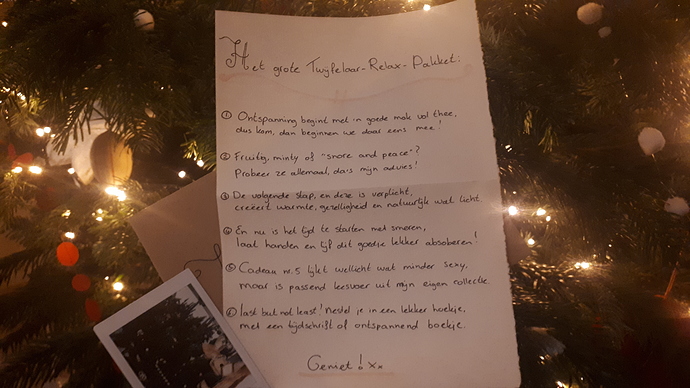 Het grote Twijfelaar-Relax-Pakket:
① Ontspanning begint met 'n goede mok vol thee,
dus kom, dan beginnen we daar eens mee!
② Fruitig, minty of "snore and peace"?
Probeer ze allemaal, da's mijn advies!
③ De volgende stap, en deze is verplicht,
creëert warmte, gezelligheid en natuurlijk wat licht.
④ En nu is het tijd te starten met smeren,
laat handen en lijf dit goedje lekker absorberen!
⑤ Cadeau nr. 5 lijkt wellicht wat minder sexy,
maar is passend leesvoer uit mijn eigen collectie.
⑥ last but not least! Nestel je in een lekker hoekje,
met een tijdschrift of ontspannend boekje.
Geniet! xx